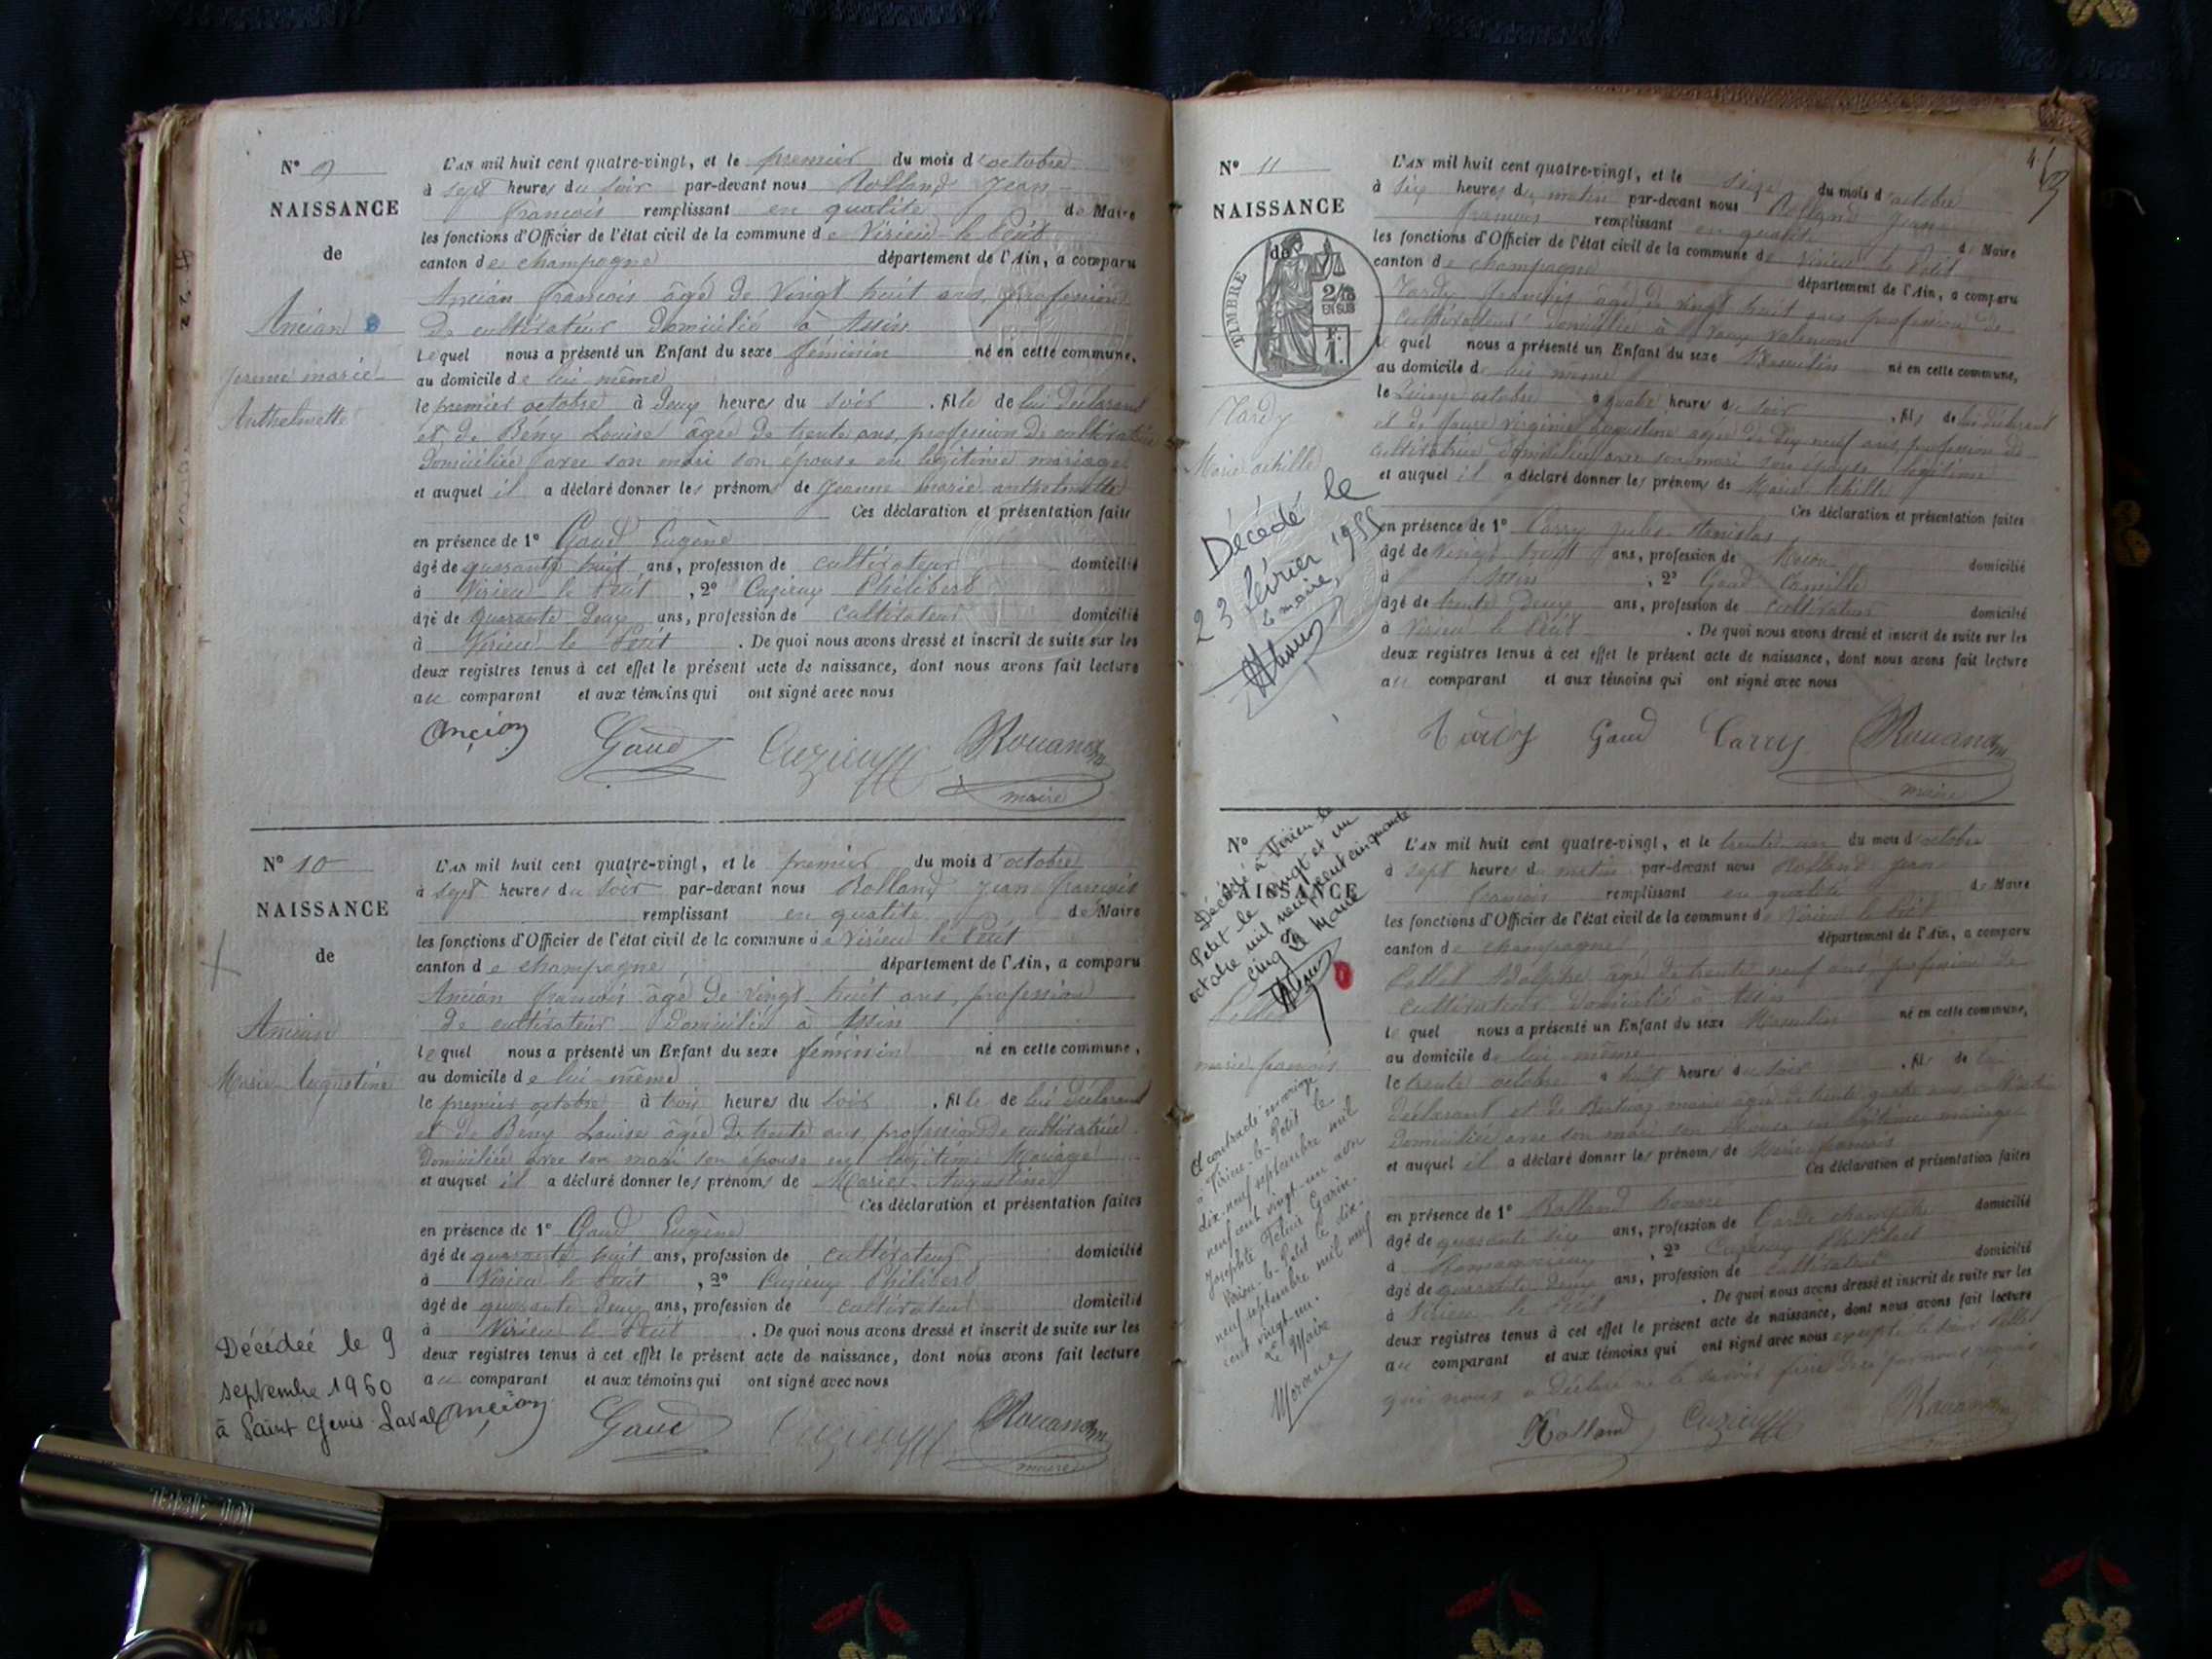 N° 9
NAISSANCE
de
Ancian
Jeanne marie
Anthelmette
L'AN mil huit cent quatre-vingt, et le premier du mois d'octobre
à sept heures du soir par-devant nous Rolland Jean
francois remplissant en qualité de Maire
les fonctions d'Officier de l'état civil de la commune de Virieu le Petit
canton de champagne département de l'Ain, a comparu
Ancian francois âgé de vingt huit ans, profession
de cultivateur domicilié à Assin
lequel nous a présenté un Enfant du sexe féminin né en cette commune,
au domicile de lui même
le premier octobre à deux heures du soir, fille de lui déclarant
et de Bény Louise âgée de trente ans, profession de cultivatrice
domiciliée avec son mari son épouse en légitime mariage
et auquel il a déclaré donner les prénoms de Jeanne marie anthelmette
Ces déclaration et présentation faites
en présence de 1° Gaud Eugène
âgé de quarante huit ans, profession de cultivateur domicilié
à Virieu le Petit, 2° Cuzieux Philibert
âgé de quarante deux ans, profession de cultivateur domicilié
à Virieu le Petit. De quoi nous avons dressé et inscrit de suite sur les
deux registres tenus à cet effet le présent acte de naissance, dont nous avons fait lecture
au comparant et aux témoins qui ont signé avec nous
Ancian Gaud Cuzieux
maire
N° 10
NAISSANCE
de
Ancian
Marie Augustine
L'AN mil huit cent quatre-vingt, et le premier du mois d'octobre
à sept heures du soir par-devant nous Rolland Jean françois
remplissant en qualité de Maire
les fonctions d'Officier de l'état civil de la commune de Virieu le Petit
canton de champagne département de l'Ain, a comparu
Ancian francois âgé de vingt huit ans, profession
de cultivateur domicilié à Assin
lequel nous a présenté un Enfant du sexe féminin né en cette commune,
au domicile de lui même
le premier octobre à trois heures du soir, fille de lui déclarant
et de Bény Louise âgée de trente ans, profession de cultivatrice
domiciliée avec son mari son épouse en légitime mariage
et auquel il a déclaré donner les prénoms de Marie Augustine
Ces déclaration et présentation faites
en présence de 1° Gaud Eugène
âgé de quarante huit ans, profession de cultivateur domicilié
à Virieu le Petit, 2° Cuzieux Philibert
âgé de quarante deux ans, profession de cultivateur domicilié
à Virieu le Petit. De quoi nous avons dressé et inscrit de suite sur les
deux registres tenus à cet effet le présent acte de naissance, dont nous avons fait lecture
au comparant et aux témoins qui ont signé avec nous
Décédée le 9
septembre 1960
à Saint Genis Laval
Ancian Gaud Cuzieux
maire
N° 11
NAISSANCE
de
TIMBRE
2/10
EN SUS
F.
1.
Tardy
Marie achille
Décédé le
23 février 1955
Le maire,
L'AN mil huit cent quatre-vingt, et le seize du mois d'octobre
à six heures du matin par-devant nous Rolland Jean
francois remplissant en qualité de Maire
les fonctions d'Officier de l'état civil de la commune de Virieu le Petit
canton de champagne département de l'Ain, a comparu
Tardy francois âgé de vingt huit ans profession de
cultivateur domicilié à
le quel nous a présenté un Enfant du sexe Masculin né en cette commune,
au domicile de lui même
le quinze octobre à quatre heures du soir, fils de lui déclarant
et de Virginie augustine agée de dix neuf ans, profession de
cultivatrice domiciliée avec son mari son épouse légitime
et auquel il a déclaré donner les prénoms de Marie Achille
Ces déclaration et présentation faites
en présence de 1° Carry Jules Stanislas
âgé de vingt huit ans, profession de Maçon domicilié
à Assin, 2° Gaud Camille
âgé de trente deux ans, profession de cultivateur domicilié
à Virieu le Petit. De quoi nous avons dressé et inscrit de suite sur les
deux registres tenus à cet effet le présent acte de naissance, dont nous avons fait lecture
au comparant et aux témoins qui ont signé avec nous
Tardy Gaud Carry
maire
N°
NAISSANCE
Décédé à Virieu le
Petit le vingt et un
octobre mil neuf cent cinquante
cinq Le Maire
marie francois
A contracté mariage
à Virieu-le-Petit le
dix-neuf septembre mil
neuf cent vingt-un avec
Virieu-le-Petit le dix-
neuf septembre mil neuf
cent vingt-un.
Le Maire
L'AN mil huit cent quatre-vingt, et le trente un du mois d'octobre
à sept heures du matin par-devant nous Rolland Jean
francois remplissant en qualité de Maire
les fonctions d'Officier de l'état civil de la commune de Virieu le Petit
canton de champagne département de l'Ain, a comparu
Pellet Adolphe âgé de trente neuf ans, profession de
cultivateur domicilié à Assin
le quel nous a présenté un Enfant du sexe Masculin né en cette commune,
au domicile de lui même
le trente octobre à huit heures du soir, fils de lui
déclarant et de marie agée de trente quatre ans, cultivatrice
domiciliée avec son mari son épouse en légitime mariage
et auquel il a déclaré donner les prénoms de Marie francois
Ces déclaration et présentation faites
en présence de 1° Rolland honoré
âgé de quarante six ans, profession de Garde champêtre domicilié
à, 2° Cuzieux Philibert
âgé de quarante deux ans, profession de cultivateur domicilié
à Virieu le Petit. De quoi nous avons dressé et inscrit de suite sur les
deux registres tenus à cet effet le présent acte de naissance, dont nous avons fait lecture
au comparant et aux témoins qui ont signé avec nous excepté le sieur Pellet
qui nous a déclaré ne le savoir faire
Rolland Cuzieux